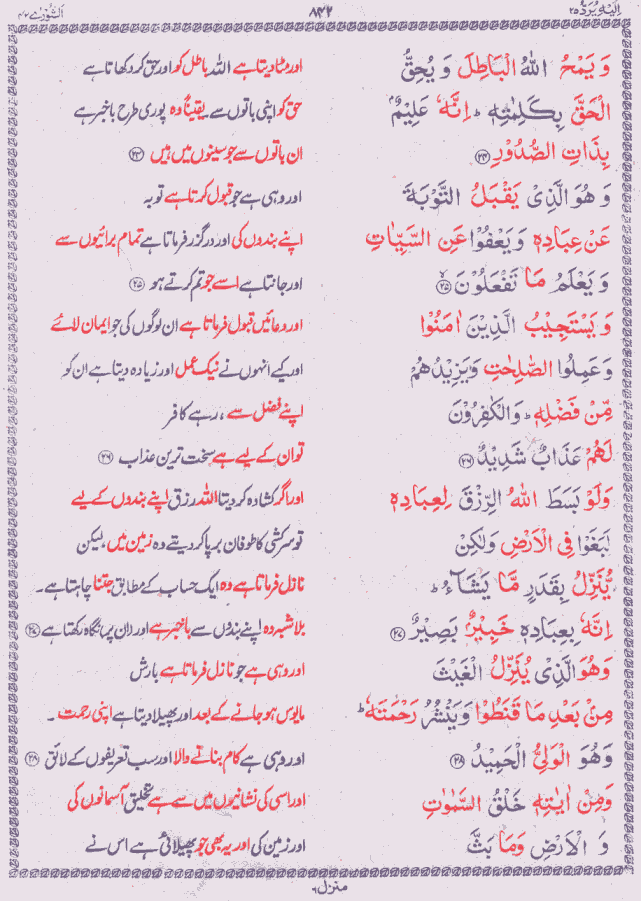 اِلَیْہِ یُرَدُّ ٢٥ ٨٤٢ اَلشُّوْرٰی ٤٢
وَ یَمْحُ اللّٰهُ الْبَاطِلَ وَ یُحِقُّ اور مٹا دیتا ہے اللہ باطل کو اور حق کر دکھاتا ہے
الْحَقَّ بِكَلِمٰتِهٖ ؕ اِنَّهٗ عَلِیْمٌۢ حق کو اپنی باتوں سے یقیناً وہ پوری طرح باخبر ہے
بِذَاتِ الصُّدُوْرِ ﴿٢٤﴾ ان باتوں سے جو سینوں میں ہیں ﴿٢٤﴾
وَ هُوَ الَّذِیْ یَقْبَلُ التَّوْبَةَ اور وہی ہے جو قبول کرتا ہے توبہ
عَنْ عِبَادِهٖ وَ یَعْفُوْا عَنِ السَّیِّاٰتِ اپنے بندوں کی اور درگزر فرماتا ہے تمام برائیوں سے
وَ یَعْلَمُ مَا تَفْعَلُوْنَ ﴿٢٥﴾ اور جانتا ہے اسے جو تم کرتے ہو ﴿٢٥﴾
وَ یَسْتَجِیْبُ الَّذِیْنَ اٰمَنُوْا اور دعائیں قبول فرماتا ہے ان لوگوں کی جو ایمان لائے
وَ عَمِلُوا الصّٰلِحٰتِ وَ یَزِیْدُهُمْ اور کیے انہوں نے نیک عمل اور زیادہ دیتا ہے ان کو
مِّنْ فَضْلِهٖ ؕ وَ الْكٰفِرُوْنَ اپنے فضل سے ، رہے کافر
لَهُمْ عَذَابٌ شَدِیْدٌ ﴿٢٦﴾ تو ان کے لیے ہے سخت ترین عذاب ﴿٢٦﴾
وَ لَوْ بَسَطَ اللّٰهُ الرِّزْقَ لِعِبَادِهٖ اور اگر کشادہ کر دیتا اللہ رزق اپنے بندوں کے لیے
لَبَغَوْا فِی الْاَرْضِ وَ لٰكِنْ تو سرکشی کا طوفان برپا کر دیتے وہ زمین میں ، لیکن
یُّنَزِّلُ بِقَدَرٍ مَّا یَشَآءُ ؕ نازل فرماتا ہے وہ ایک حساب کے مطابق جتنا چاہتا ہے ۔
اِنَّهٗ بِعِبَادِهٖ خَبِیْرٌۢ بَصِیْرٌ ﴿٢٧﴾ بلاشبہ وہ اپنے بندوں سے باخبر ہے اور ان پر نگاہ رکھتا ہے ﴿٢٧﴾
وَ هُوَ الَّذِیْ یُنَزِّلُ الْغَیْثَ اور وہی ہے جو نازل فرماتا ہے بارش
مِنْۢ بَعْدِ مَا قَنَطُوْا وَ یَنْشُرُ رَحْمَتَهٗ ؕ مایوس ہو جانے کے بعد اور پھیلا دیتا ہے اپنی رحمت ۔
وَ هُوَ الْوَلِیُّ الْحَمِیْدُ ﴿٢٨﴾ اور وہی ہے کام بنانے والا اور سب تعریفوں کے لائق ﴿٢٨﴾
وَ مِنْ اٰیٰتِهٖ خَلْقُ السَّمٰوٰتِ اور اسی کی نشانیوں میں سے ہے تخلیق آسمانوں کی
وَ الْاَرْضِ وَ مَا بَثَّ اور زمین کی اور یہ بھی جو پھیلائی ہے اس نے
منزل ٦